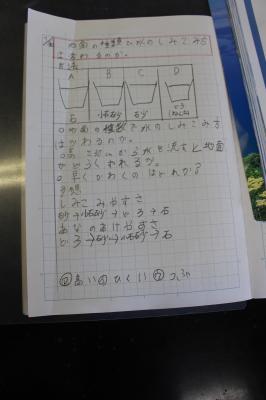 地面の種類で水のしみこみ方
は変わるのか。
方法
A B C D
石 小石砂 砂 どろ
(ねんど)
○地面の種数で水のしみこみ方
はかわるのか。
○高いところから水を流すと地面
がどうくわれるか。
○早くかわくのはどれか?
予想
しみこみやすさ
砂→小石砂→どろ→石
あなのあけやすさ
どろ→砂→小石砂→石
高い ひくい つぶ